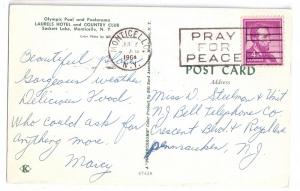 Olympic Pool and Poolorama
LAURELS HOTEL and COUNTRY CLUB
Sackett Lake, Monticello, N. Y.
MONTICELLO
1964
N.Y.
PRAY
FOR
PEACE
POST CARD
Address
Beautiful place
Gorgeous weather
Delicious Food.
Who could ask for
anything more.
Marcy
Miss D. Steelman & Unit
NJ Bell Telephone Co
Crescent Blvd &
Pennsauken, NJ
K